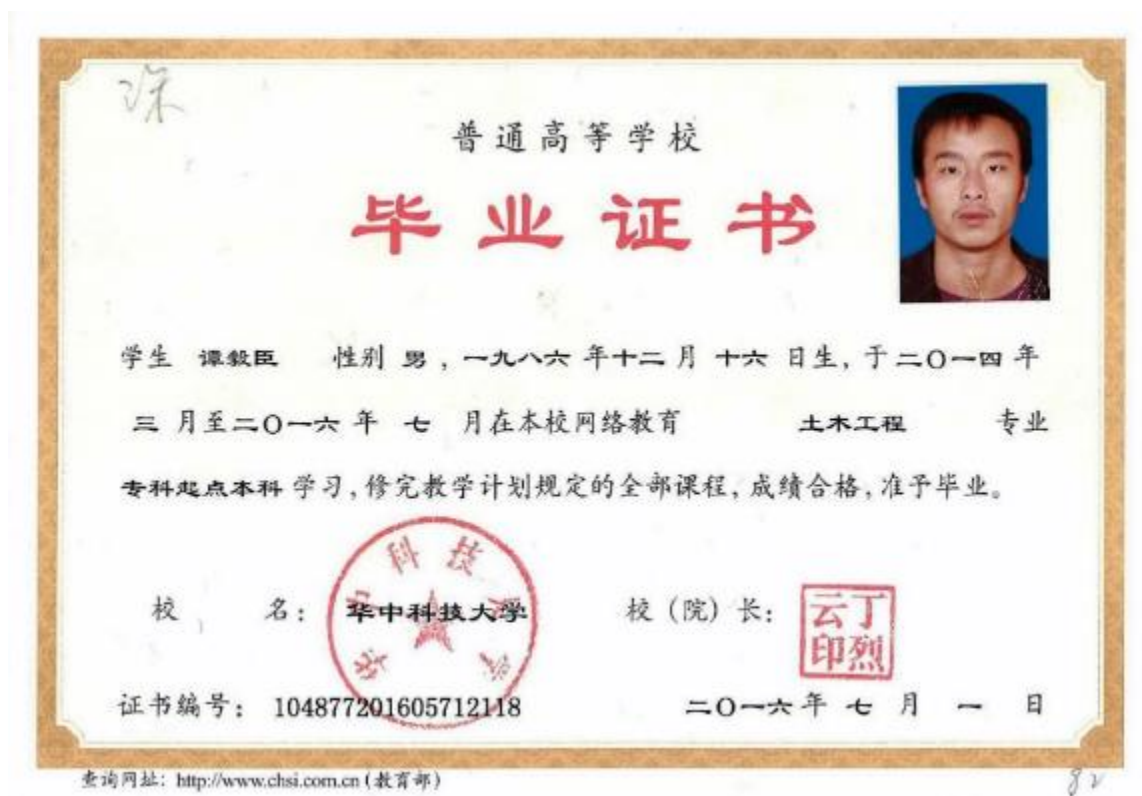 深
普通高等学校
毕业证书
学生 谭毅臣 性别 男 , 一九八六 年十二月 十六 日生, 于二〇一四 年
三 月至二〇一六 年 七 月在本校网络教育 土木工程 专业
专科起点本科 学习, 修完教学计划规定的全部课程, 成绩合格, 准予毕业。
校 名: 华中科技大学 校(院)长:
华中科技大学
丁烈云印
证书编号: 104877201605712118 二〇一六年 七 月 一 日
查询网址: http://www.chsi.com.cn (教育部)
82